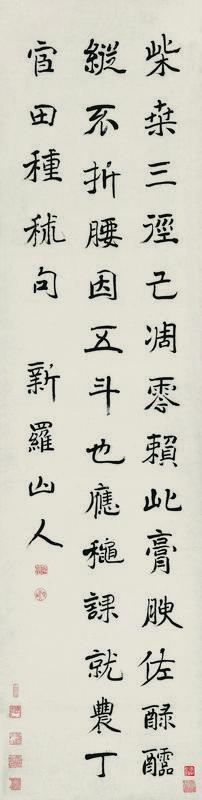 柴桒三徑已凋零賴此膏腴佐醁醽
縱不折腰因五斗也應課就農丁
官田種秫句 新羅山人